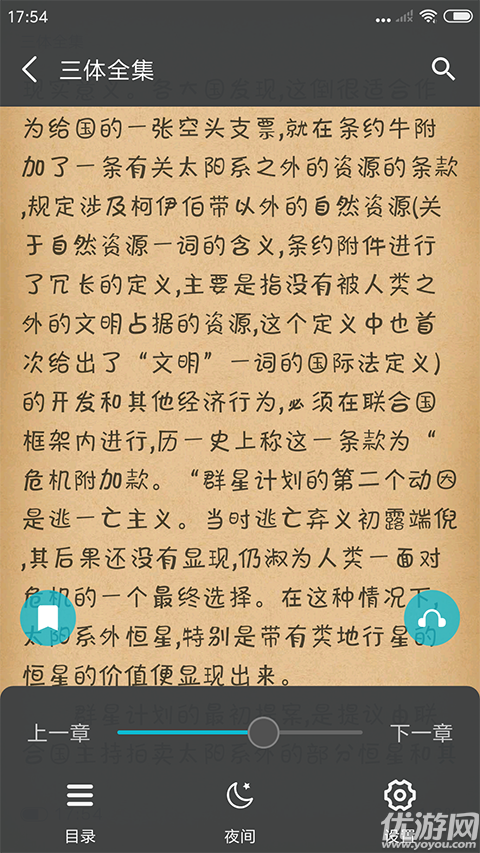 17:54
三体全集
为给国的一张空头支票,就在条约牛附
加了一条有关太阳系之外的资源的条款
,规定涉及柯伊伯带以外的自然资源(关
于自然资源一词的含义,条约附件进行
了冗长的定义,主要是指没有被人类之
外的文明占据的资源,这个定义中也首
次给出了“文明”一词的国际法定义)
的开发和其他经济行为,必须在联合国
框架内进行,历一史上称这一条款为“
危机附加款。“群星计划的第二个动因
是逃一亡主义。当时逃亡弃义初露端倪
,其后果还没有显现,仍淑为人类一面对
危机的一个最终选择。在这种情况下,
太阳系外恒星,特别是带有类地行星的
恒星的价值便显现出来。
群星计划的最初提案,是提议由联
合国主持拍卖太阳系外的部分恒星和其
上一章
下一章
目录
夜间
设置
优游网
www.yoyou.com